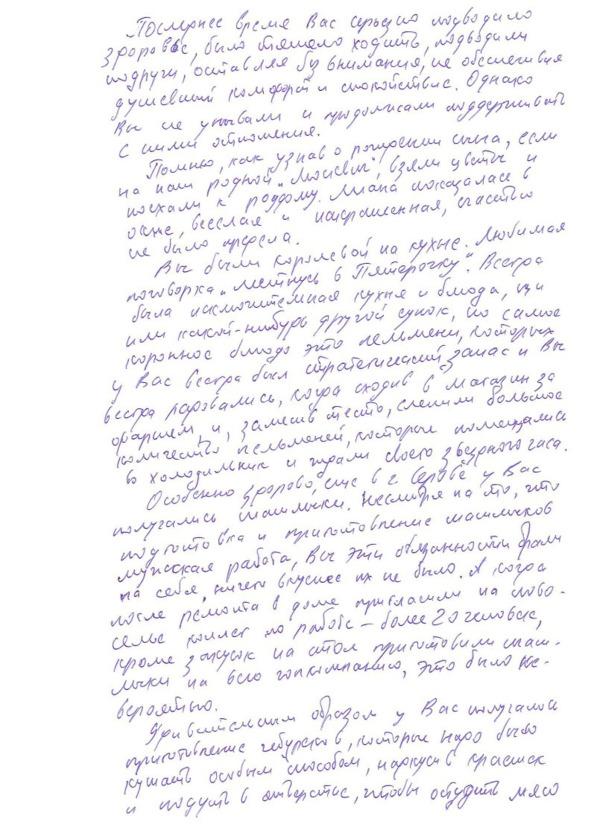 Последнее время Вас серьезно подводило
здоровье, было тяжело ходить, подводили
подруги, оставляя без внимания, не обеспечивая
душевный комфорт и спокойствие. Однако
Вы не унывали и продолжали поддерживать
с ними отношения.
Помню, как узнав о рождении сына, если
на наш родной „Москвич", взяли цветы и
поехали к роддому. Мила показалась в
окне, веселая и накрашенная, счастью
не было предела.
Вы были королевой на кухне. Любимая
поговорка „метнусь в Пятерочку". Всегда
была исключительная кухня и блюда, щи
или какой-нибудь другой супок, но самое
коронное блюдо это пельмени, которых
у Вас всегда был стратегический запас и Вы
всегда радовались, когда сходив в магазин за
фаршем и, замесив тесто, слепили большое
количество пельменей, которые помещались
в холодильник и ждали своего звездного часа.
Особенно здорово, еще в г. Серове у Вас
получались шашлыки. Несмотря на то, что
подготовка и приготовление шашлыков
мужская работа, Вы эти обязанности брали
на себя, ничего вкуснее их не было. А когда
после ремонта в доме пригласили на ново-
селье коллег по работе – более 20 человек,
кроме закусок на стол приготовили шаш-
лыки на всю компанию, это было не-
вероятно.
Удивительным образом у Вас получалось
приготовление чебуреков, которые надо было
кушать особым способом, надкусив краешек
и подуть в отверстие, чтобы остудить мясо